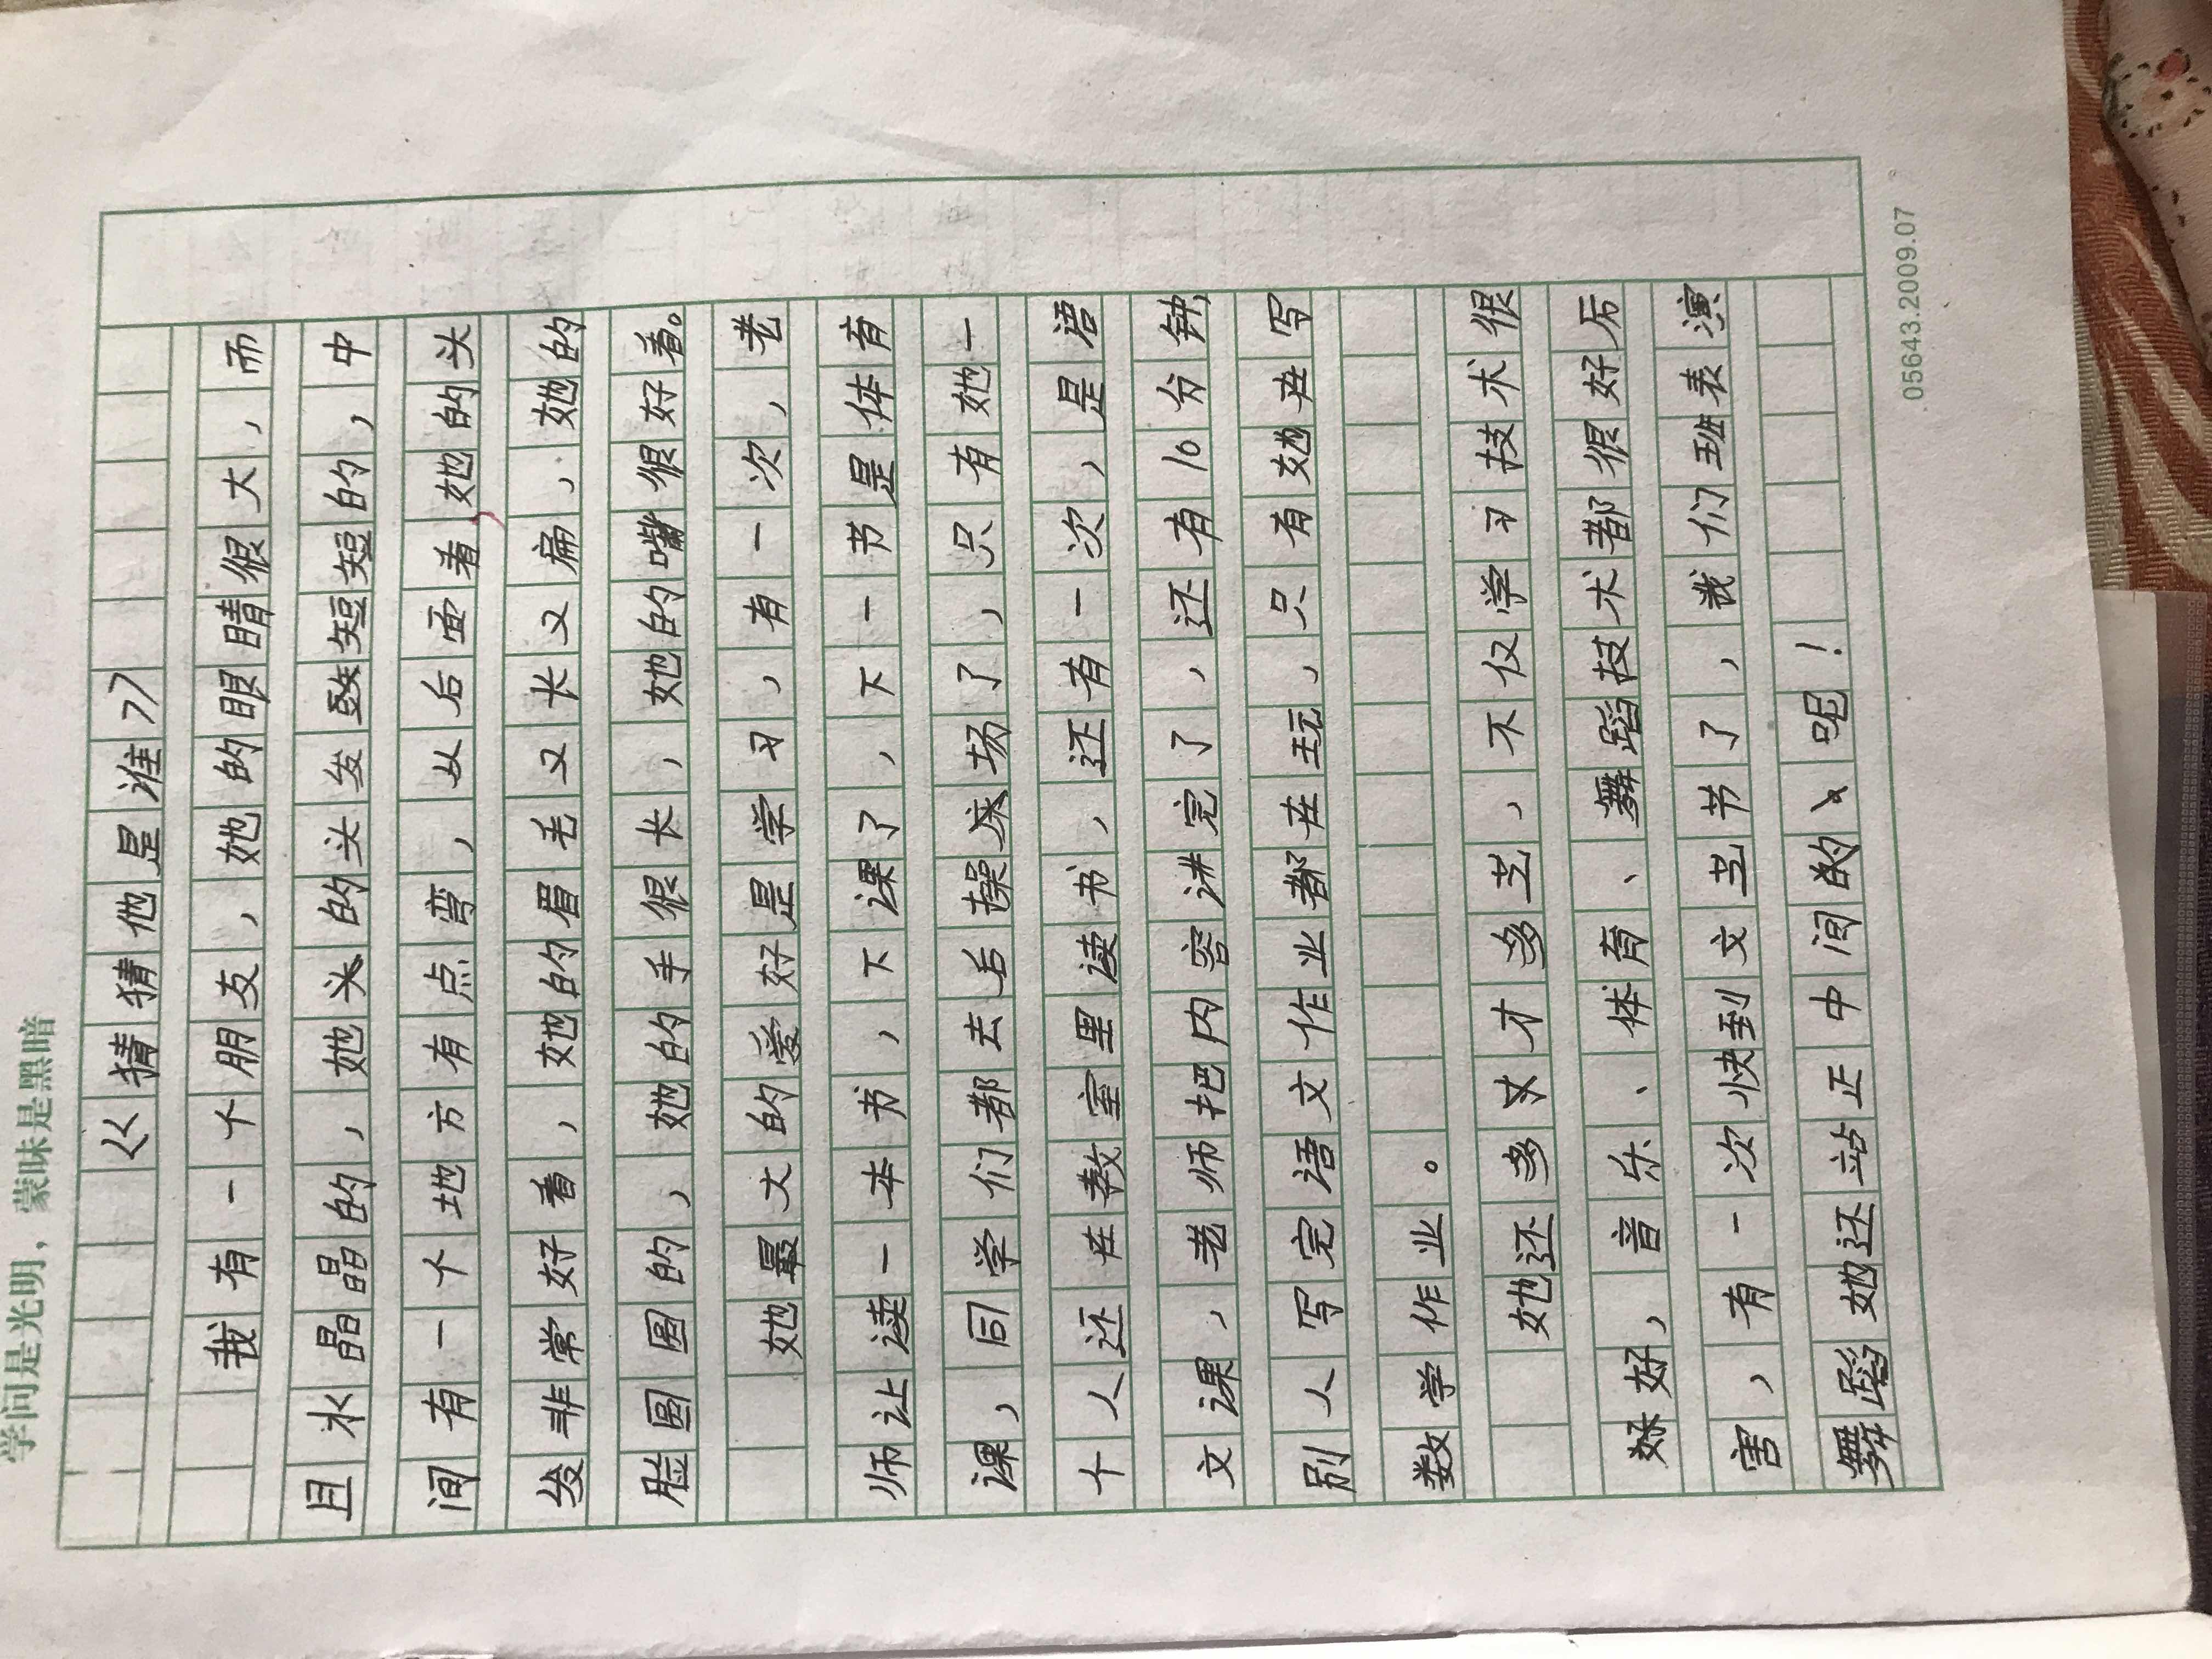 学问是光明，蒙昧是黑暗
《猜猜他是谁》
我有一个朋友，她的眼睛很大，而
且水晶晶的，她头的头发短短的，中
间有一个地方有点弯，从后面看她的头
发非常好看，她的眉毛又长又扁，她的
脸圆圆的，她的手很长，她的嘴很好看。
她最大的爱好是学习，有一次，老
师让读一本书，下课了，下一节是体育
课，同学们都去后操场了，只有她一
个人还在教室里读书，还有一次，是语
文课，老师把内容讲完了，还有10分钟
别人写完语文作业都在玩，只有她在写
数学作业。
她还多才多艺，不仅学习技术很
好，音乐、体育、舞蹈技术都很好厉
害，有一次快到文艺节了，我们班表演
舞蹈她还站正中间的呢！
05643.2009.07